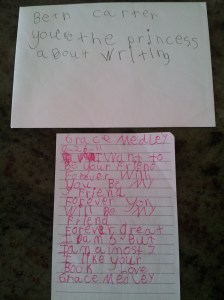 Beth Carter
you'e the princess
about writing
Grace Medley
I Want to
Be your Friend
Forever Will
You Be My
Friend
Forever you
Will Be My
Friend
Forever Great
I am 5. But
I am almost
I like your
Book Love
Grace Medley